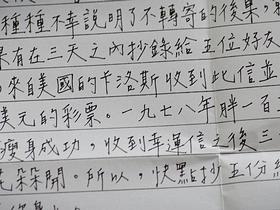 種種不幸說明了不轉寄的後果,
果有在三天之內抄錄給五位好友
。來自美國的卡洛斯收到此信並
美元的彩票。一九七八年胖一百
瘦身成功,收到幸運信之後三
花朵朵開。所以,快點抄五份給